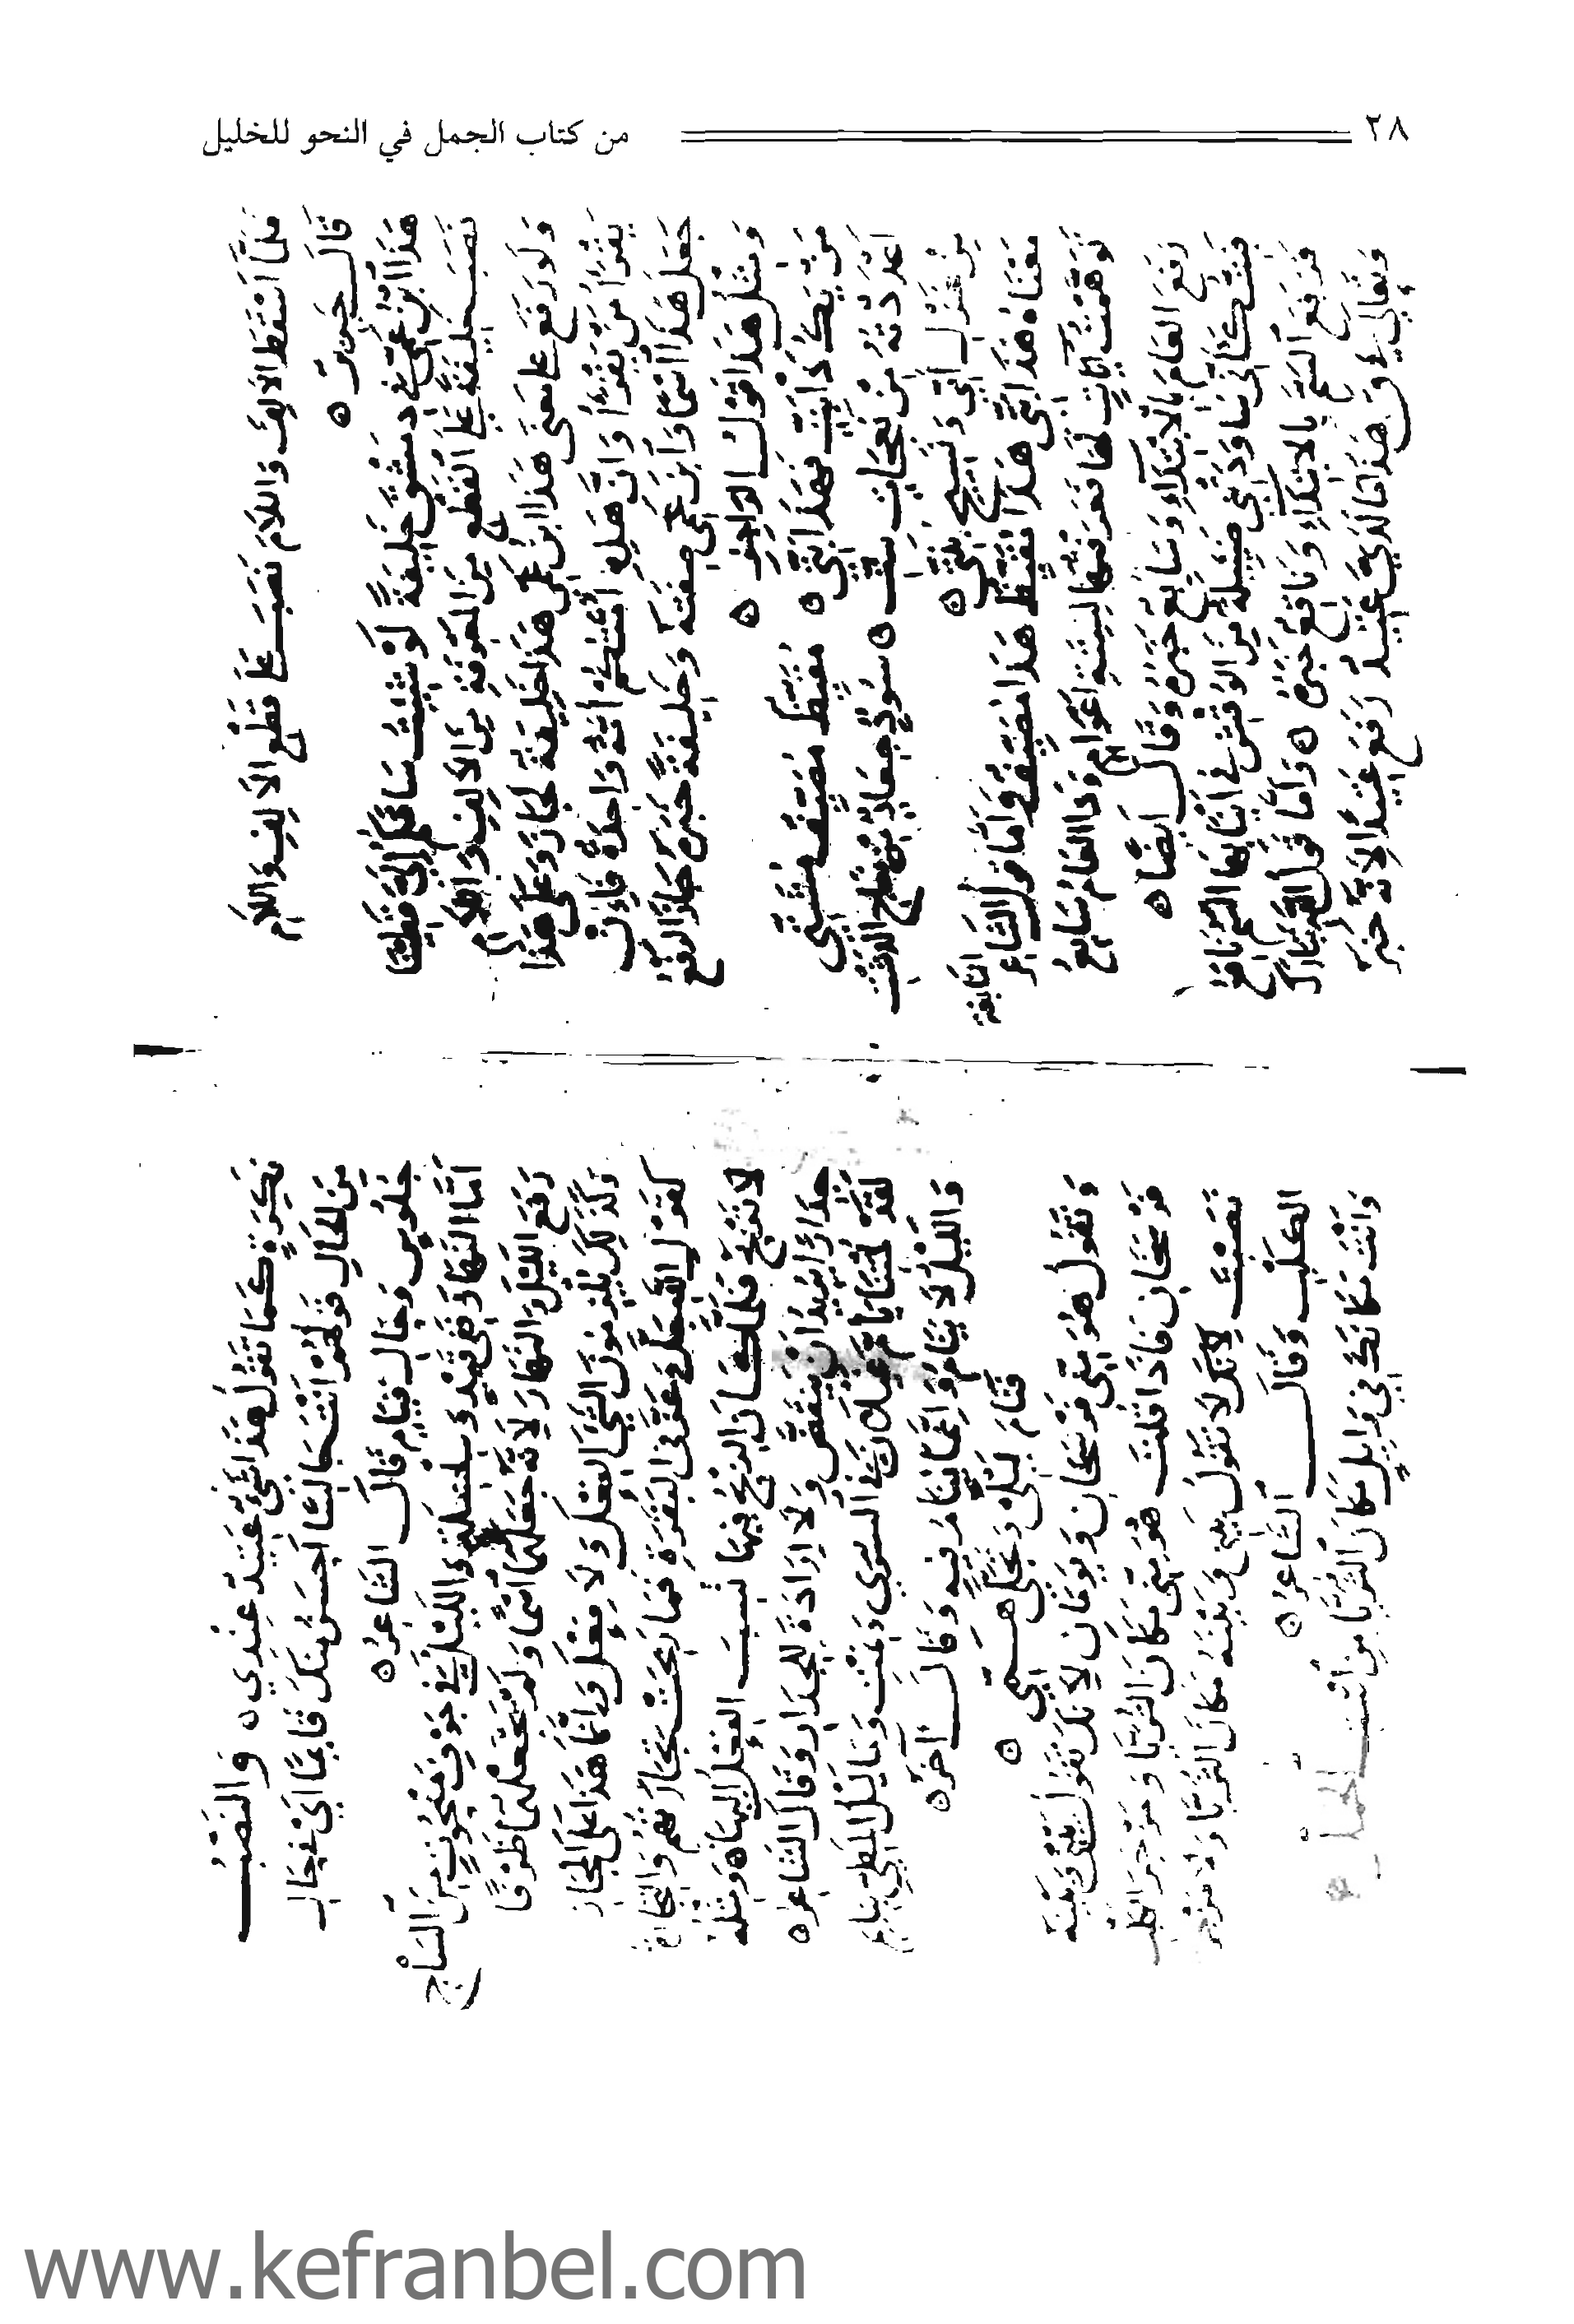 ٢٨
من كتاب الجمل في النحو للخليل
فَلَمَّا أَسْقَطَ الأَلِفَ وَاللَّامَ نَصَبَ عَلَى قَطْعِ الأَلِفِ وَاللَّامِ
قَالَ جَرِيرٌ
هَذَا ابْنُ عَمِّي فِي دِمَشْقَ خَلِيفَةً لَوْ شِئْتُ سَاقَكُمُ إِلَيَّ قَطِينَا
نَصَبَ خَلِيفَةً عَلَى القَطْعِ مِنَ المَعْرِفَةِ مِنَ الأَلِفِ وَاللَّامِ
وَلَوْ رَفَعَ عَلَى مَعْنَى هَذَا ابْنُ عَمِّي هَذَا خَلِيفَةٌ لَجَازَ وَعَلَى هَذَا
يَقْرَأُ مَنْ يَقْرَأُ وَأَنَّ هَذِهِ أُمَّتُكُمْ أُمَّةٌ وَاحِدَةٌ فَإِنْ
جَعَلَ هَذَا اسْمًا وَابْنَ عَمِّي صِفَتَهُ وَخَلِيفَةً خَبَرَهُ جَازَ الرَّفْعُ
وَمِثْلُ هَذَا قَوْلُ الرَّاجِزِ
مَنْ يَكُ ذَا بَتٍّ فَهَذَا بَتِّي مُقَيِّظٌ مُصَيِّفٌ مُشَتِّي
أَعْدَدْتُهُ مِنْ نَعَجَاتٍ سِتِّ سُودٍ جِعَادٍ مِنْ نِعَاجِ الدَّشْتِ
مِنْ غَزْلِ أُمِّي وَنَسِيجِ بِنْتِي
مَعْنَاهُ هَذَا بَتِّي هَذَا مُقَيِّظٌ هَذَا مُصَيِّفٌ وَأَمَّا قَوْلُ الشَّاعِرِ النَّابِغَةِ
تَوَهَّمْتُ آيَاتٍ لَهَا فَعَرَفْتُهَا لِسِتَّةِ أَعْوَامٍ وَذَا العَامُ سَابِعُ
رَفَعَ العَامَ بِالابْتِدَاءِ وَسَابِعٌ خَبَرُهُ وَقَالَ أَيْضًا
فَبِتُّ كَأَنِّي سَاوَرَتْنِي ضَئِيلَةٌ مِنَ الرُّقْشِ فِي أَنْيَابِهَا السَّمُّ نَاقِعُ
فَرَفَعَ السَّمَّ بِالابْتِدَاءِ وَنَاقِعٌ خَبَرُهُ وَأَمَّا قَوْلُ اللهِ تَبَارَكَ
وَتَعَالَى فِي ق هَذَا مَا لَدَيَّ عَتِيدٌ رَفَعَ عَتِيدًا لِأَنَّهُ خَبَرُ
نَكِرَةٍ كَمَا تَقُولُ هَذَا شَيْءٌ عَتِيدٌ عِنْدِي وَالنَّصْبُ
مِنَ الحَالِ قَوْلُهُمْ أَنْتَ جَالِسًا أَحْسَنُ مِنْكَ قَائِمًا أَيْ فِي حَالِ
جُلُوسٍ وَحَالِ قِيَامٍ قَالَ الشَّاعِرُ
أَمَّا النَّهَارَ فَفِي قَيْدٍ وَسِلْسِلَةٍ وَاللَّيْلَ فِي جَوْفِ مَنْحُوتٍ مِنَ السَّاجِ
رَفَعَ اللَّيْلَ وَالنَّهَارَ لِأَنَّهُ جَعَلَهُمَا اسْمًا وَلَمْ يَجْعَلْهُمَا ظَرْفًا
وَكَذَلِكَ يُلْزِمُونَ الشَّيْءَ الفِعْلَ وَلَا فِعْلَ وَإِنَّمَا هَذَا عَلَى المَجَازِ
كَقَوْلِ اللهِ جَلَّ وَعَزَّ فِي البَقَرَةِ فَمَا رَبِحَتْ تِجَارَتُهُمْ وَالتِّجَارَةُ
لَا تَرْبَحُ فَلَمَّا كَانَ الرِّبْحُ فِيهَا نَسَبَ الفِعْلَ إِلَيْهَا وَمِثْلُهُ
جِدَارًا يُرِيدُ أَنْ يَنْقَضَّ وَلَا إِرَادَةَ لِلْجِدَارِ وَقَالَ الشَّاعِرُ
لَقَدْ لُمْتِنَا يَا أُمَّ غَيْلَانَ فِي السُّرَى وَنِمْتِ وَمَا لَيْلُ المَطِيِّ بِنَائِمِ
وَاللَّيْلُ لَا يَنَامُ وَإِنَّمَا يُنَامُ فِيهِ وَقَالَ آخَرُ
فَنَامَ لَيْلِي وَتَجَلَّى هَمِّي
وَتَقُولُ هُوَ مِنِّي فَرْسَخَانِ وَيَوْمَانِ لِأَنَّكَ تَقُولُ بَيْنِي وَبَيْنَهُ
فَرْسَخَانِ فَإِذَا قُلْتَ هُوَ مِنِّي مَكَانَ الثُّرَيَّا وَمَزْجَرَ الكَلْبِ
نَصَبْتَ لِأَنَّكَ لَا تَقُولُ بَيْنِي وَبَيْنَهُ مَكَانَ الثُّرَيَّا وَلَا مَزْجَرَ
الكَلْبِ وَقَالَ الشَّاعِرُ
وَأَنْتَ مَكَانَكَ مِنْ وَائِلٍ مَكَانَ الثُّرَيَّا مِنِ اسْتِ الحَمَلْ
www.kefranbel.com